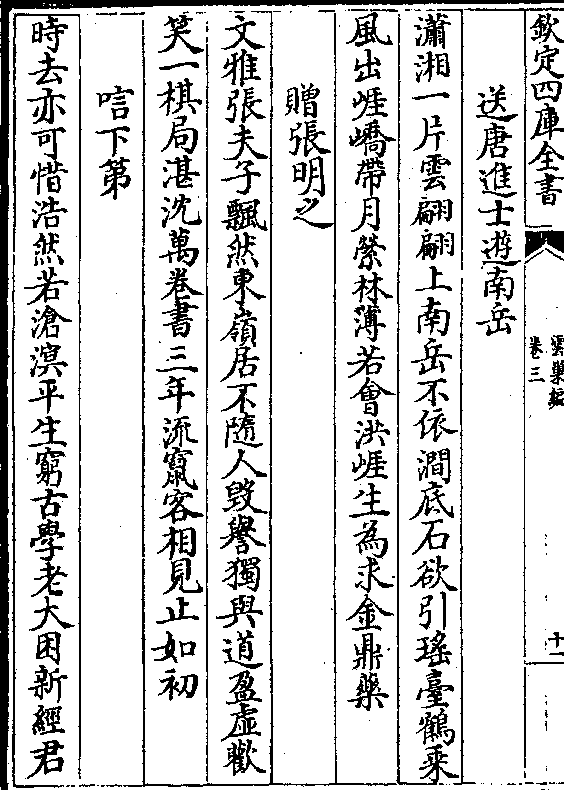 欽定四庫全書
雲巢編
卷三
十一
送唐進士遊南岳
瀟湘一片雲翩翩上南岳不依澗底石欲引瑤臺鶴乘
風出崕嶠帶月縈林薄若會洪崕生為求金鼎藥
贈張明之
文雅張夫子飄然東嶺居不隨人毀譽獨與道盈虛歡
笑一棋局湛沈萬卷書三年流竄客相見止如初
唁下第
時去亦可惜浩然若滄溟平生窮古學老大困新經君